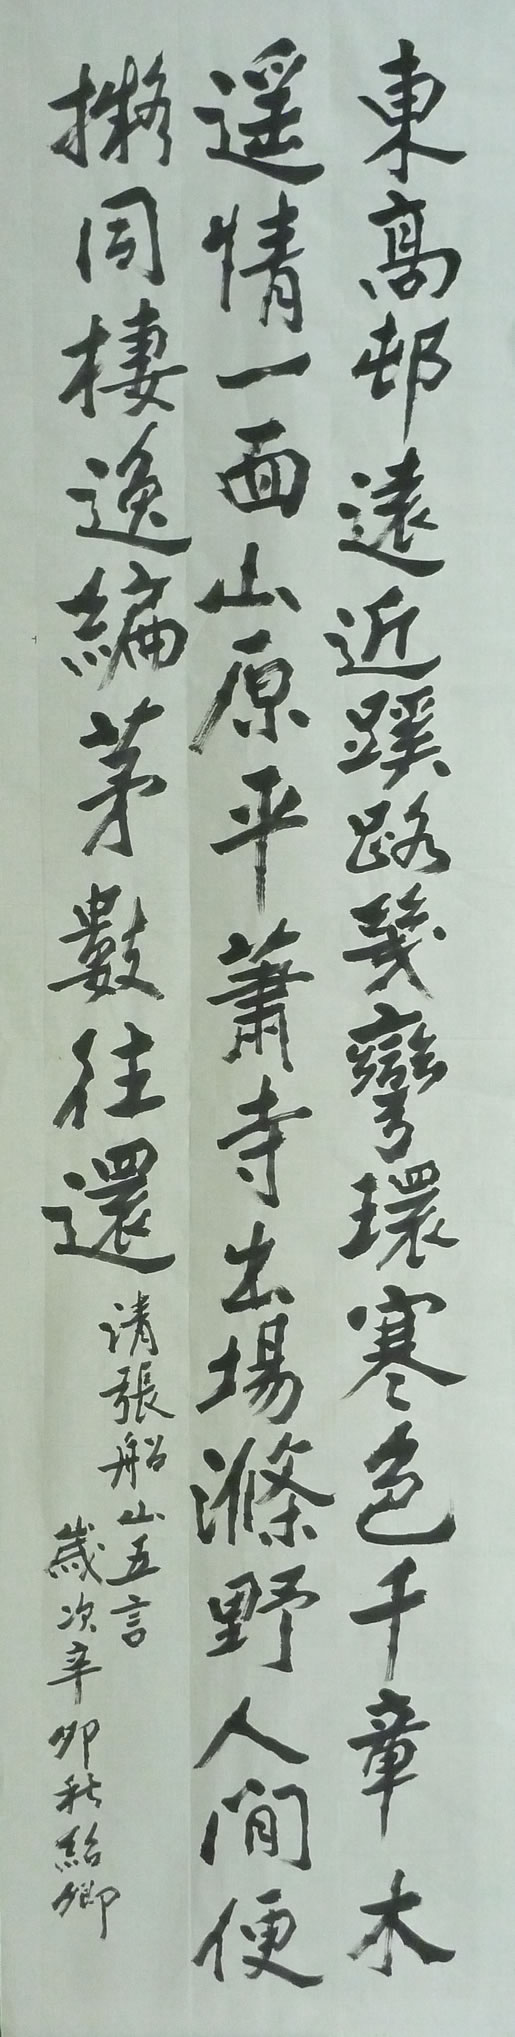 東高邨遠近蹊路幾彎環寒色千章木
遥情一面山原平蕭寺出場滌野人間便
擬同棲逸編茅數往還
清張船山五言
歲次辛卯秋紹卿